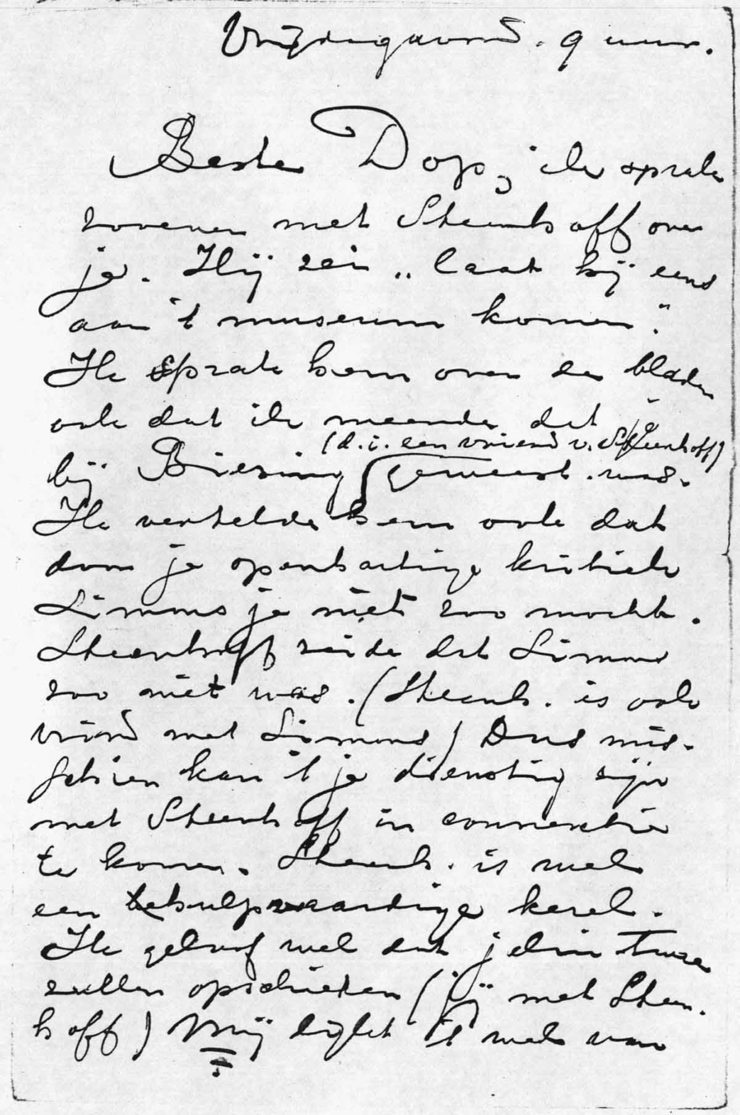 Vrijdagavond. 9 uur.
Beste Dop, ik sprak
zooeven met Steenhoff over
je. Hij zei „laat hij eens
aan 't museum komen."
Ik sprak hem over de bladen
ook dat ik meende dat je
(d.i. een vriend v. Steenhoff)
bij Biesing geweest was.
Ik vertelde hem ook dat
door je openhartige kritiek
Simons je niet zoo mocht.
Steenhoff zeide dat Simons
zoo niet was. (Steenh. is ook
vriend met Simons) Dus mis-
schien kan 't je dienstig zijn
met Steenhoff in connectie
te komen. Steenh. is wel
een behulpvaardige kerel.
Ik geloof wel dat jelui twee
zullen opschieten (jij met Steen-
hoff) Mij lijkt 't wel van